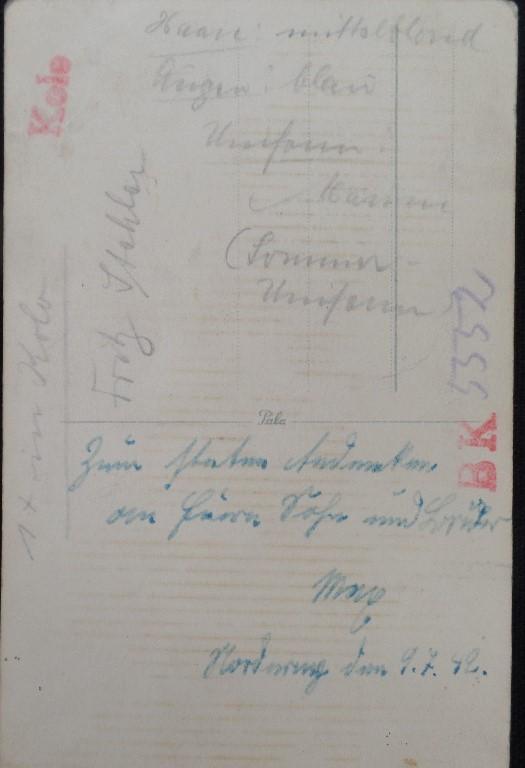 Haare: mittelblond
Augen: blau
Uniform:
(Sommer-
Uniform)
Kolo
Fritz Stahler
1 x in Kolo
BK 5352
Pala
Zum steten Andenken
an Euern Sohn und Bruder
Max
den 9.7.42.